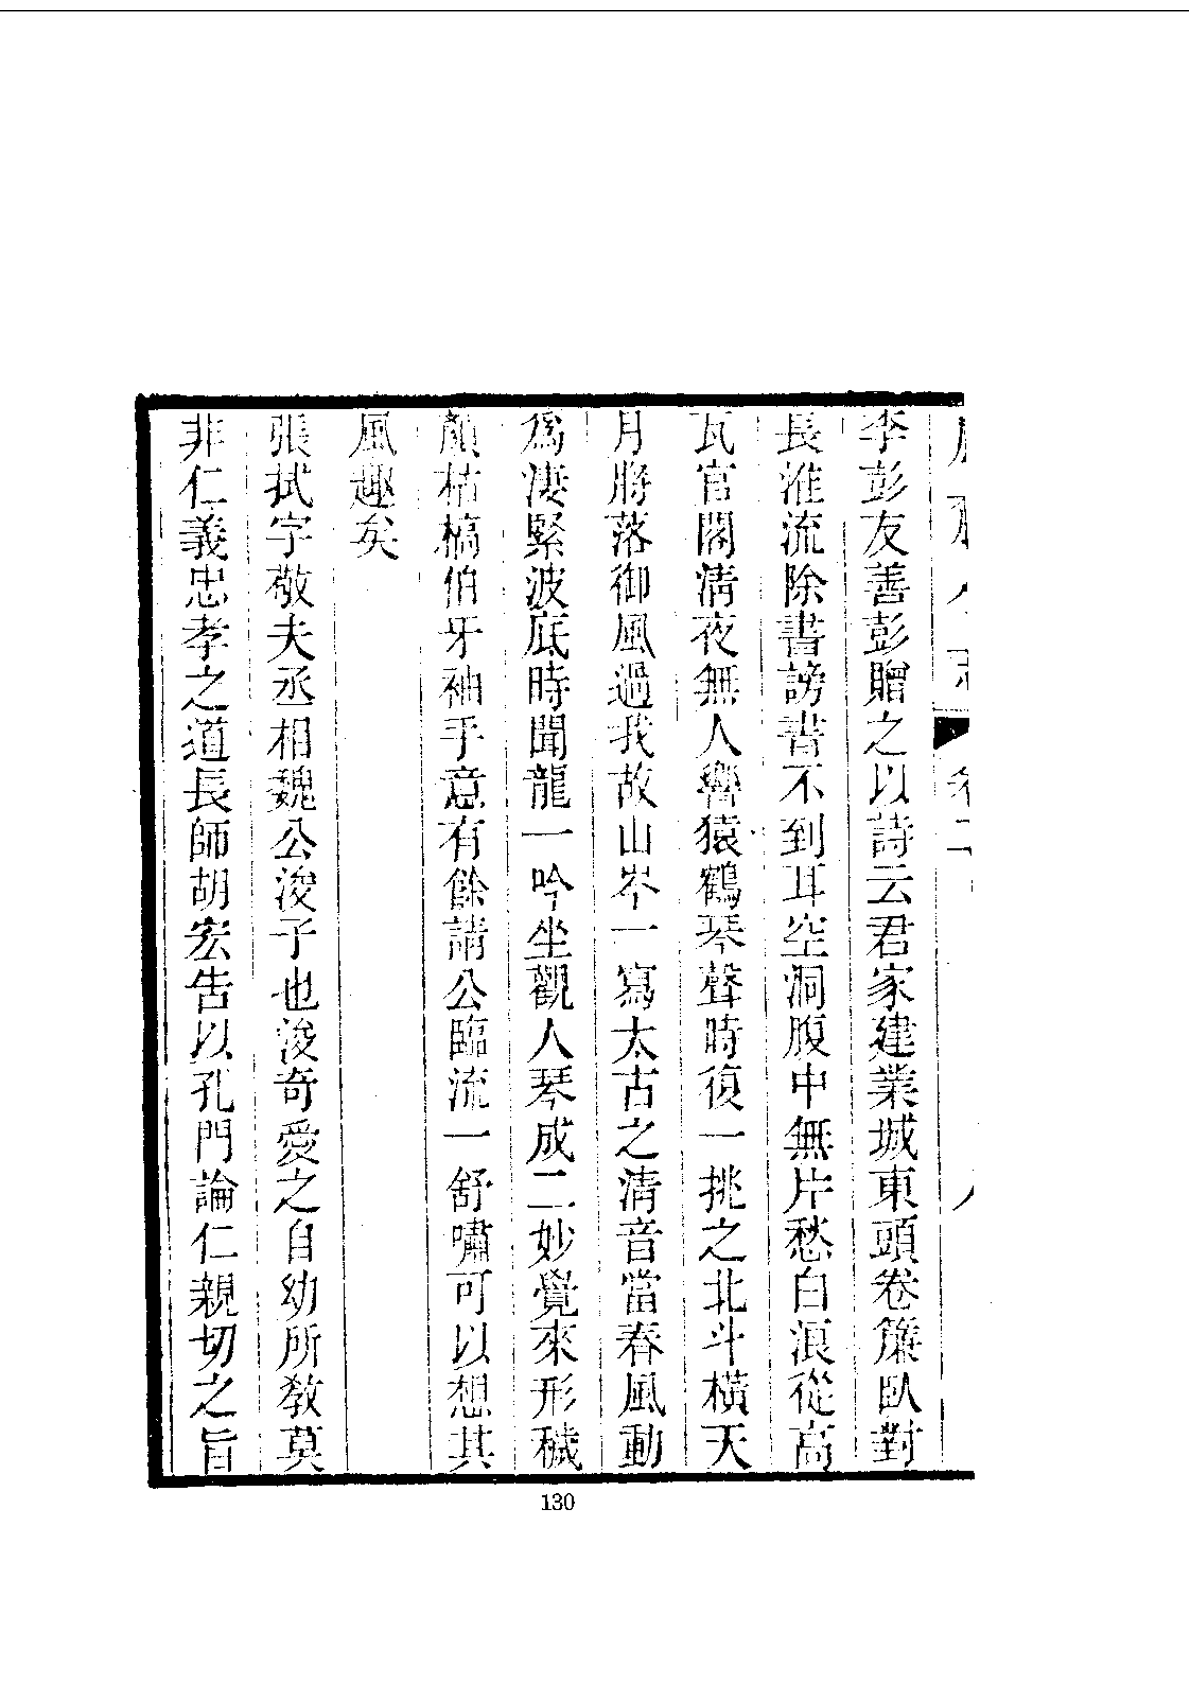 李彭友善彭贈之以詩云君家建業城東頭卷簾臥對
長淮流除書謗書不到耳空洞腹中無片愁白浪從高
瓦官閣淸夜無人響猿鶴琴聲時復一挑之北斗橫天
月將落御風過我故山岑一寫太古之淸音當春風動
爲凄緊波底時聞龍一吟坐觀人琴成二妙覺來形穢
顏枯槁伯牙袖手意有餘請公臨流一舒嘯可以想其
風趣矣
張拭字敬夫丞相魏公浚子也浚奇愛之自幼所教莫
非仁義忠孝之道長師胡宏告以孔門論仁親切之旨
130